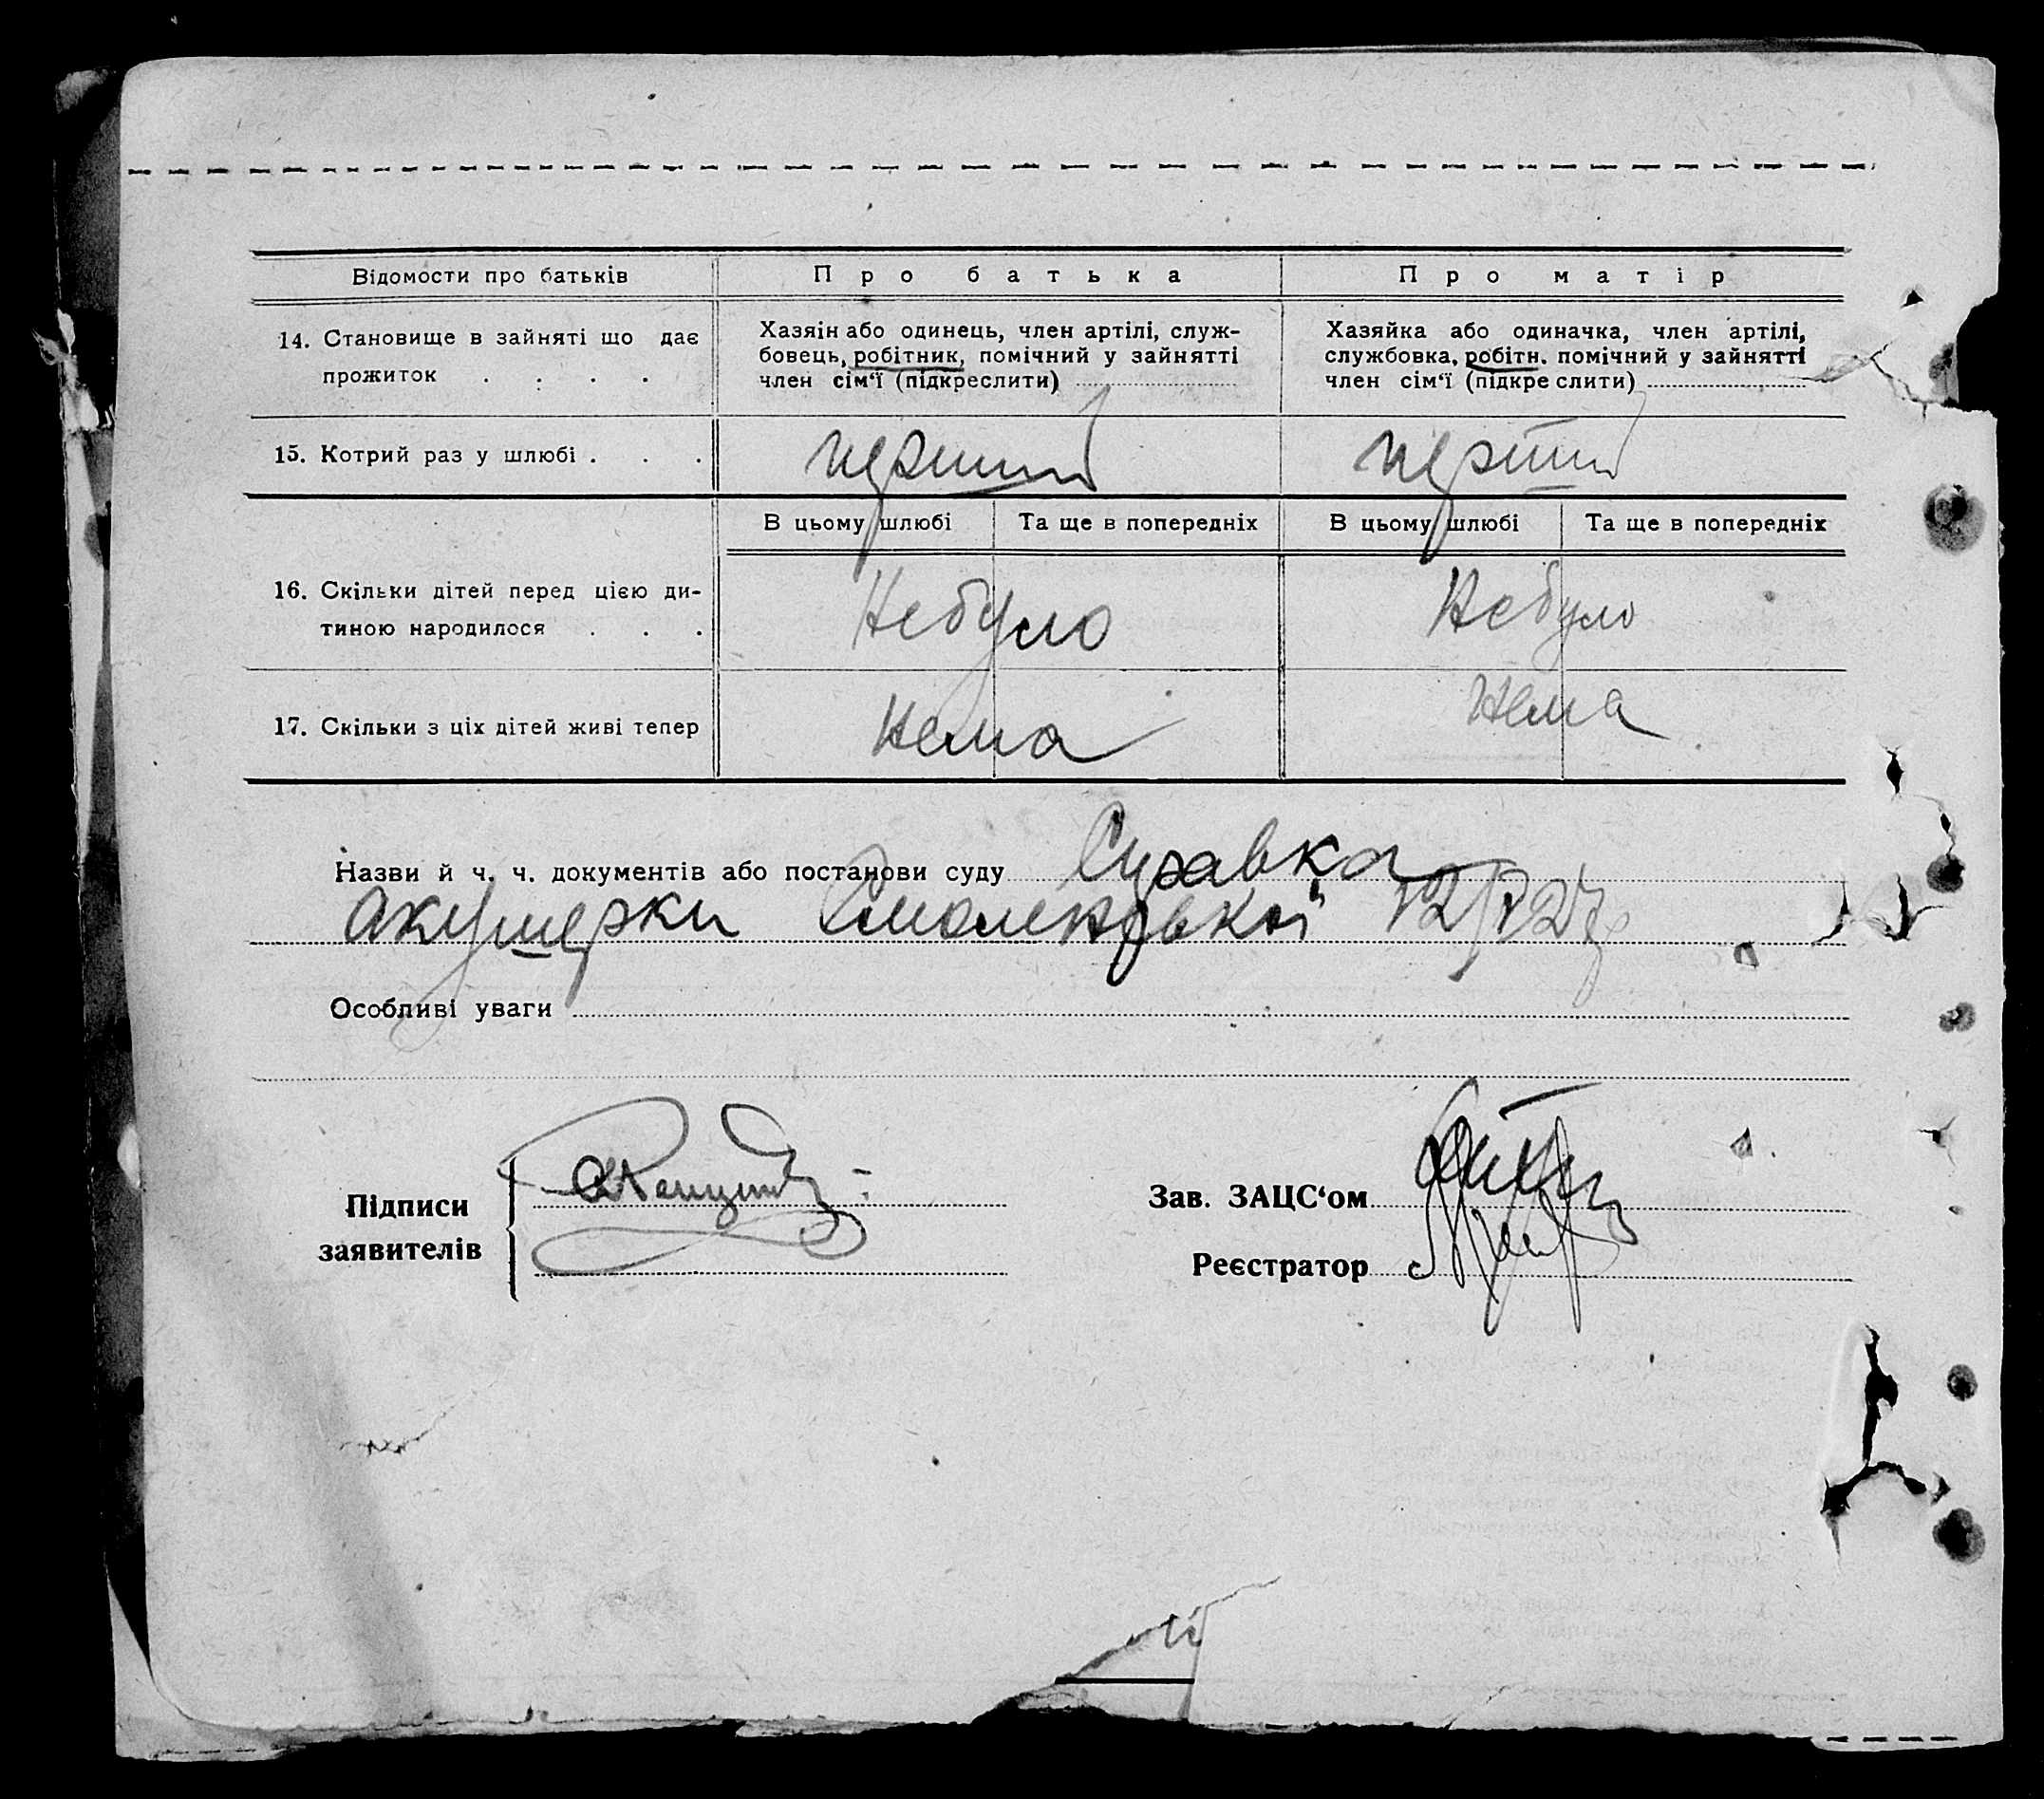 Відомости про батьків Про батька Про матір
14. Становище в зайняті що дає прожиток . . . .
Хазяін або одинець, член артілі, служ-
бовець, робітник, помічний у зайнятті
член сім‘ї (підкреслити)
Хазяйка або одиначка, член артілі,
службовка, робітн. помічний у зайнятті
член сім‘ї (підкреслити)
15. Котрий раз у шлюбі . . . перший перший
В цьому шлюбі Та ще в попередніх В цьому шлюбі Та ще в попередніх
16. Скільки дітей перед цією ди-
тиною народилося . . .
Небуло Небуло
17. Скільки з ціх дітей живі тепер Нема Нема
Назви й ч. ч. документів або постанови суду Справка
акушерки Смоленської
Особливі уваги
Підписи
заявителів
Зав. ЗАЦС‘ом
Реєстратор